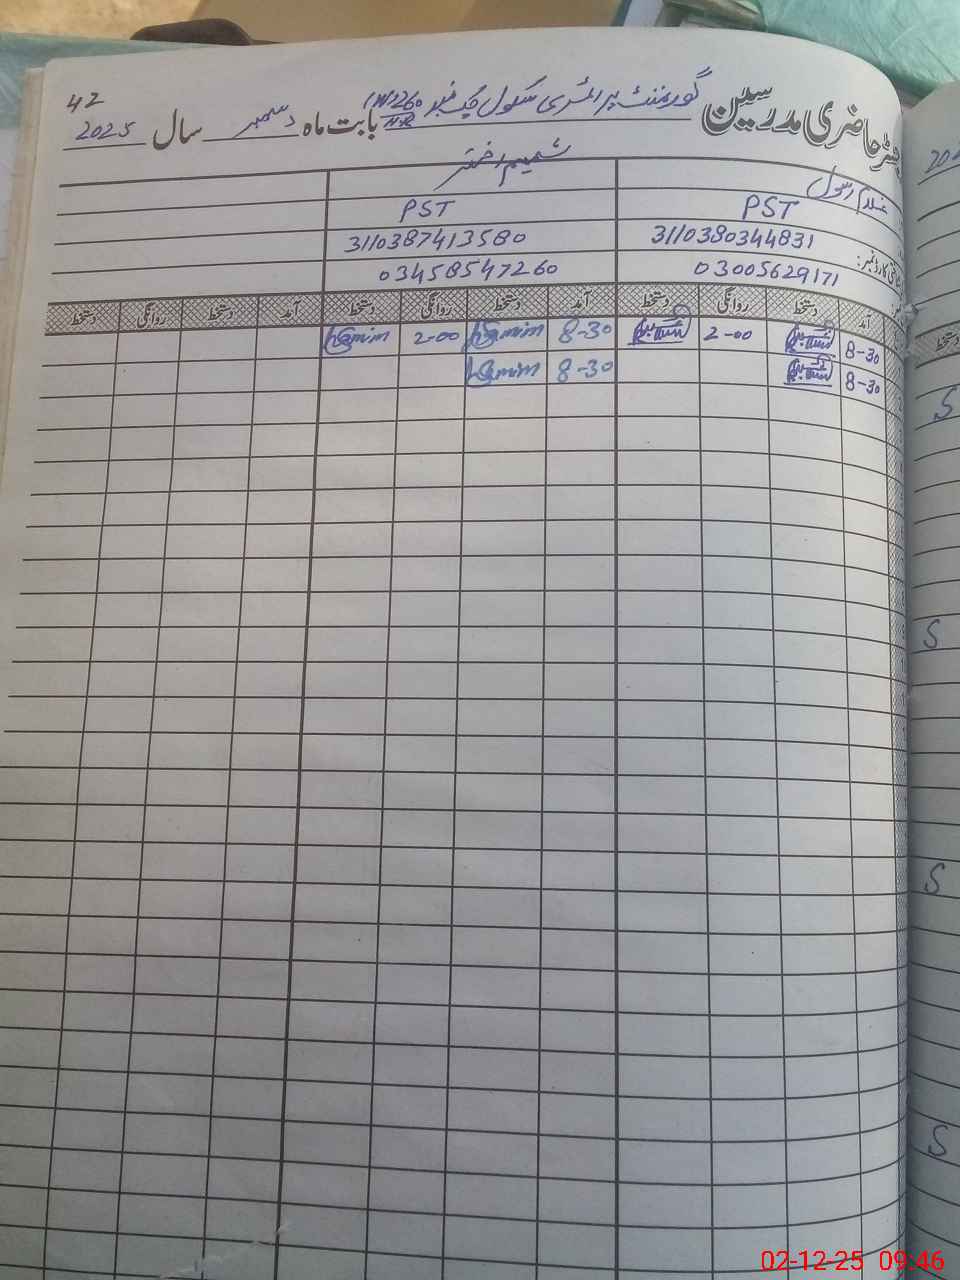 42
رجسٹر حاضری مدرسین گورنمنٹ پرائمری سکول چک نمبر 260 بابت ماہ دسمبر سال 2025
H-R
غلام رسول شمیم اختر
PST PST
3110380344831 3110387413580
03005629171 03458547260
آمد دستخط روانگی دستخط آمد دستخط روانگی دستخط آمد دستخط روانگی دستخط
8-30 2-00 8-30 Shamim 2-00 Shamim
8-30 8-30 Shamim
S
S
S
S
02-12-25 09:46